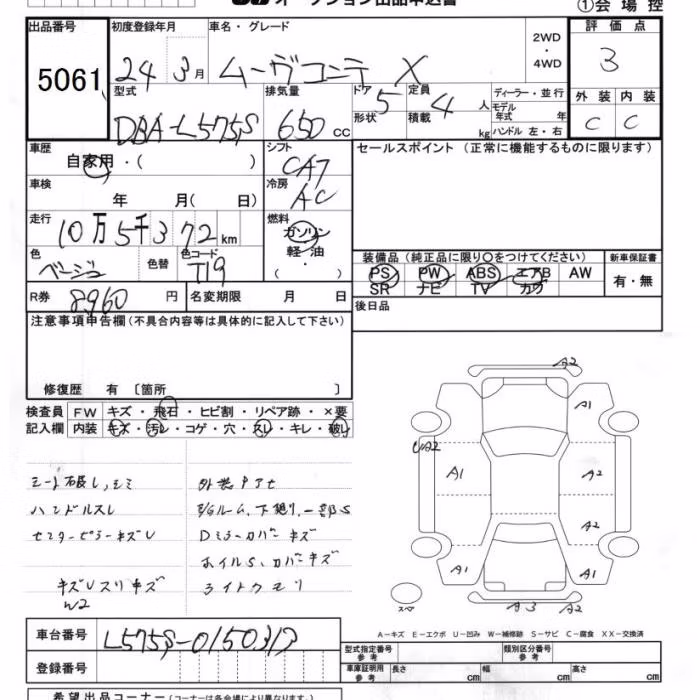 オークション出品申込書
①会場控
出品番号 5061
初度登録年月 24 3月
車名・グレード ムーヴコンテ X
2WD・4WD
評価点 3
型式 DBA-L575S
排気量 650 cc
ドア 5 形状
定員 4 人 積載 kg
ディーラー・並行
モデル年式 年
ハンドル 左・右
外装 C 内装 C
車歴 自家用・( )
シフト CA7
セールスポイント (正常に機能するものに限ります)
車検 年 月( 日)
冷房 AC
走行 10万5千372km
燃料 ガソリン 軽油 ( ・ )
色 ベージュ 色替 色コード T19
装備品 (純正品に限り○をつけてください) 新車保証書
PS PW ABS エアB AW 有・無
SR ナビ TV カワ
R券 8960円 名変期限 月 日
後日品
注意事項申告欄 (不具合内容等は具体的に記入して下さい)
修復歴 有 〔箇所 〕
検査員 FW キズ・飛石・ヒビ割・リペア跡・×要
記入欄 内装 キズ・汚レ・コゲ・穴・スレ・キレ・破レ
シート破レ,シミ 外装Pアセ
ハンドルスレ
センターピラーキズU Dミラーカバーキズ
ホイルS、カバーキズ
キズUスリキズ ライトクモリ
W2
A2
A1
UA2
A1 A2
A2
A1 A1
スペア A3 A2
A−キズ E−エクボ U−凹み W−補修跡 S−サビ C−腐食 XX−交換済
車台番号 L575S-0150317
登録番号
型式指定番号 参考 類別区分番号 参考
車庫証明用 参考 長さ cm 幅 cm 高さ cm
希望出品コーナー (コーナーは各会場により異なります。)